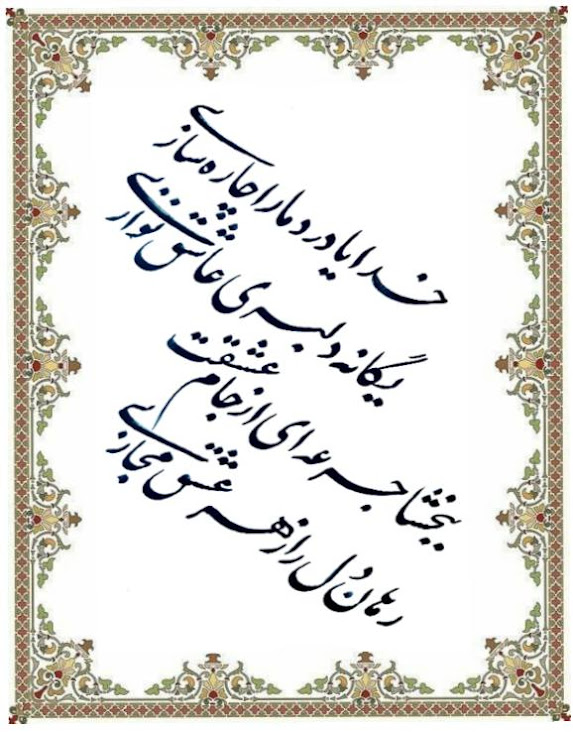 خدایا درد ما را چاره سازی
یگانه دلبری عاشق نوازی
ببخشا جرعه ای از جام عشقت
رهان دل را ز هر عشق مجازی